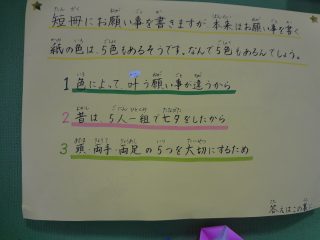 短冊にお願い事を書きますが、本来はお願い事を書く
紙の色は、5色もあるそうです。なんで5色もあるんでしょう。
1 色によって、叶う願い事が違うから
2 昔は、5人一組で七夕をしたから
3 頭・両手・両足の5つを大切にするため
答えはこの裏